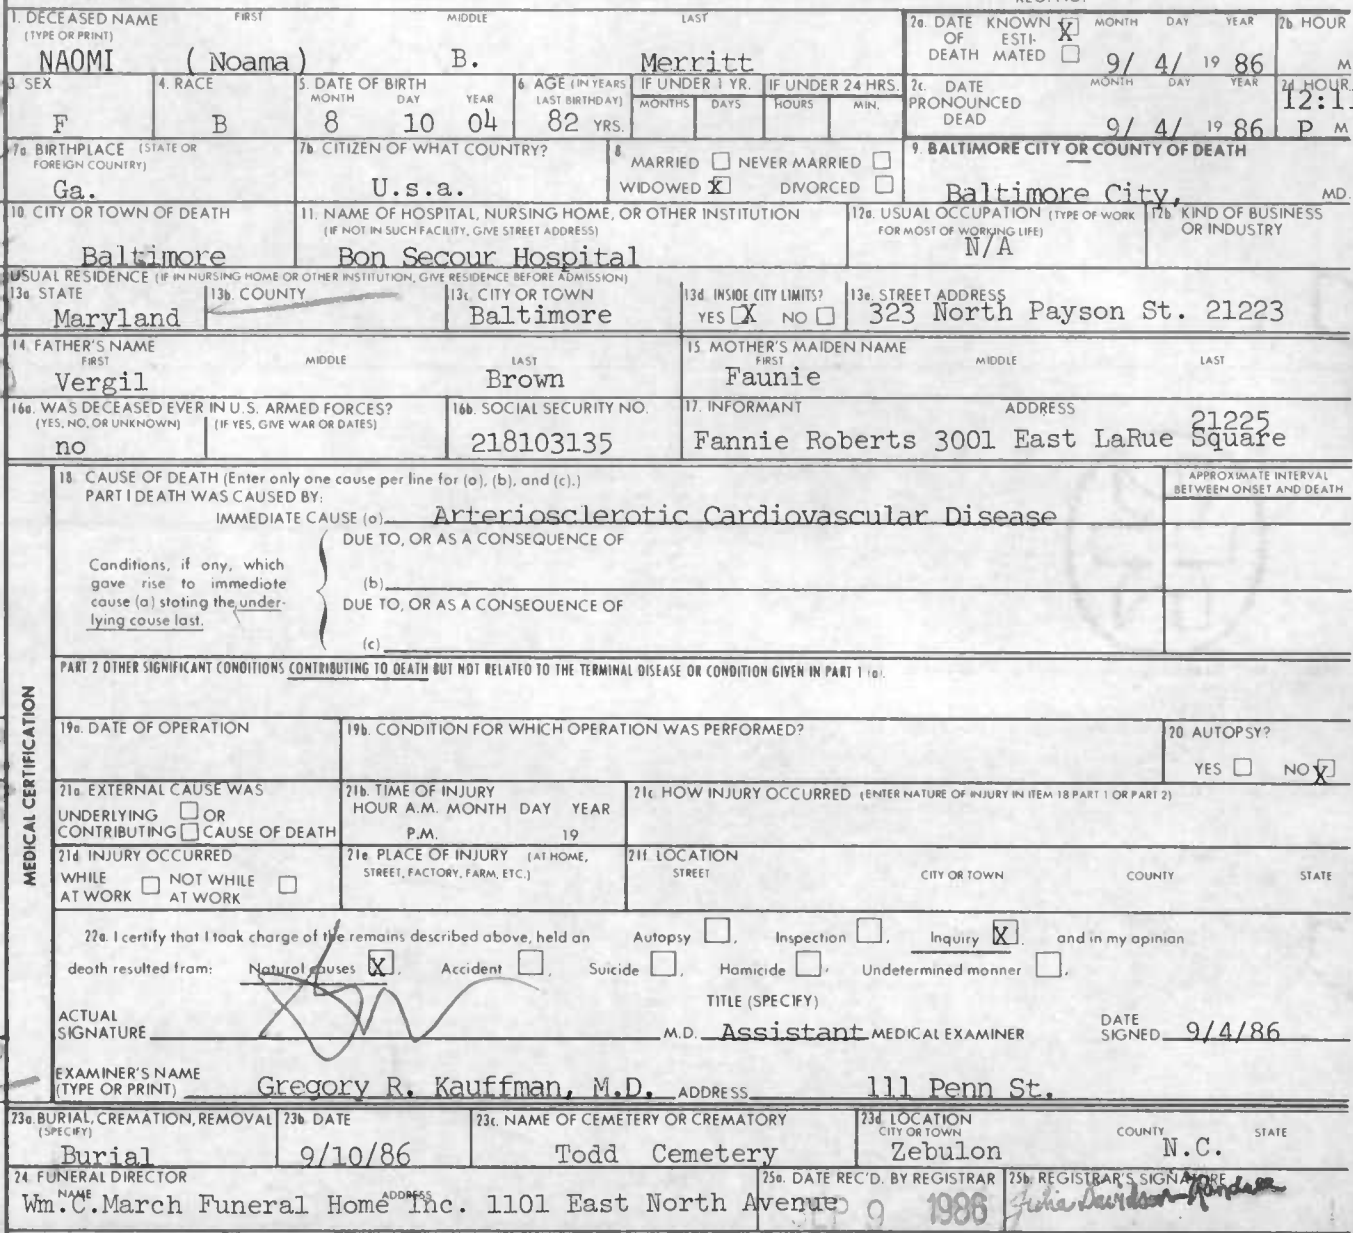 1. DECEASED NAME FIRST MIDDLE LAST
(TYPE OR PRINT)
NAOMI (Noama) B. Merritt
2a. DATE KNOWN X MONTH DAY YEAR
OF ESTI-
DEATH MATED 9/ 4/ 19 86
2b HOUR
M
3 SEX
F
4. RACE
B
5. DATE OF BIRTH
MONTH DAY YEAR
8 10 04
6 AGE (IN YEARS
LAST BIRTHDAY)
82 YRS.
IF UNDER 1 YR.
MONTHS DAYS
IF UNDER 24 HRS.
HOURS MIN.
2c. DATE MONTH DAY YEAR
PRONOUNCED
DEAD 9/ 4/ 19 86
2d HOUR
12:11
P M
7a BIRTHPLACE (STATE OR
FOREIGN COUNTRY)
Ga.
7b CITIZEN OF WHAT COUNTRY?
U.s.a.
8
MARRIED NEVER MARRIED
WIDOWED X DIVORCED
9. BALTIMORE CITY OR COUNTY OF DEATH
Baltimore City, MD.
10. CITY OR TOWN OF DEATH
Baltimore
11. NAME OF HOSPITAL, NURSING HOME, OR OTHER INSTITUTION
(IF NOT IN SUCH FACILITY, GIVE STREET ADDRESS)
Bon Secour Hospital
12a. USUAL OCCUPATION (TYPE OF WORK
FOR MOST OF WORKING LIFE)
N/A
12b KIND OF BUSINESS
OR INDUSTRY
USUAL RESIDENCE (IF IN NURSING HOME OR OTHER INSTITUTION, GIVE RESIDENCE BEFORE ADMISSION)
13a STATE
Maryland
13b. COUNTY
13c CITY OR TOWN
Baltimore
13d INSIDE CITY LIMITS?
YES X NO
13e. STREET ADDRESS
323 North Payson St. 21223
14 FATHER'S NAME
FIRST MIDDLE LAST
Vergil Brown
15 MOTHER'S MAIDEN NAME
FIRST MIDDLE LAST
Faunie
16a. WAS DECEASED EVER IN U.S. ARMED FORCES?
(YES, NO, OR UNKNOWN) (IF YES, GIVE WAR OR DATES)
no
16b. SOCIAL SECURITY NO.
218103135
17. INFORMANT ADDRESS
21225
Fannie Roberts 3001 East LaRue Square
MEDICAL CERTIFICATION
18 CAUSE OF DEATH (Enter only one cause per line for (a), (b), and (c).)
PART I DEATH WAS CAUSED BY:
IMMEDIATE CAUSE (a) Arteriosclerotic Cardiovascular Disease
APPROXIMATE INTERVAL
BETWEEN ONSET AND DEATH
DUE TO, OR AS A CONSEQUENCE OF
Conditions, if any, which
gave rise to immediate
cause (a) stating the under-
lying cause last.
(b)
DUE TO, OR AS A CONSEQUENCE OF
(c)
PART 2 OTHER SIGNIFICANT CONDITIONS CONTRIBUTING TO DEATH BUT NOT RELATED TO THE TERMINAL DISEASE OR CONDITION GIVEN IN PART 1 (a).
19a. DATE OF OPERATION
19b. CONDITION FOR WHICH OPERATION WAS PERFORMED?
20 AUTOPSY?
YES NO X
21a EXTERNAL CAUSE WAS
UNDERLYING OR
CONTRIBUTING CAUSE OF DEATH
21b. TIME OF INJURY
HOUR A.M. MONTH DAY YEAR
P.M. 19
21c HOW INJURY OCCURRED (ENTER NATURE OF INJURY IN ITEM 18 PART 1 OR PART 2)
21d INJURY OCCURRED
WHILE NOT WHILE
AT WORK AT WORK
21e PLACE OF INJURY (AT HOME,
STREET, FACTORY, FARM, ETC.)
21f LOCATION
STREET CITY OR TOWN COUNTY STATE
22a. I certify that I took charge of the remains described above, held an Autopsy , Inspection , Inquiry X , and in my opinion
death resulted from: Natural causes X , Accident , Suicide , Homicide , Undetermined manner .
ACTUAL
SIGNATURE M.D.
TITLE (SPECIFY)
Assistant MEDICAL EXAMINER
DATE
SIGNED 9/4/86
EXAMINER'S NAME
(TYPE OR PRINT) Gregory R. Kauffman, M.D. ADDRESS 111 Penn St.
23a BURIAL, CREMATION, REMOVAL
(SPECIFY)
Burial
23b DATE
9/10/86
23c. NAME OF CEMETERY OR CREMATORY
Todd Cemetery
23d LOCATION
CITY OR TOWN COUNTY STATE
Zebulon N.C.
24 FUNERAL DIRECTOR
NAME ADDRESS
Wm.C.March Funeral Home Inc. 1101 East North Avenue
25a. DATE REC'D. BY REGISTRAR
SEP 9 1986
25b. REGISTRAR'S SIGNATURE
Julia Davidson-Randall